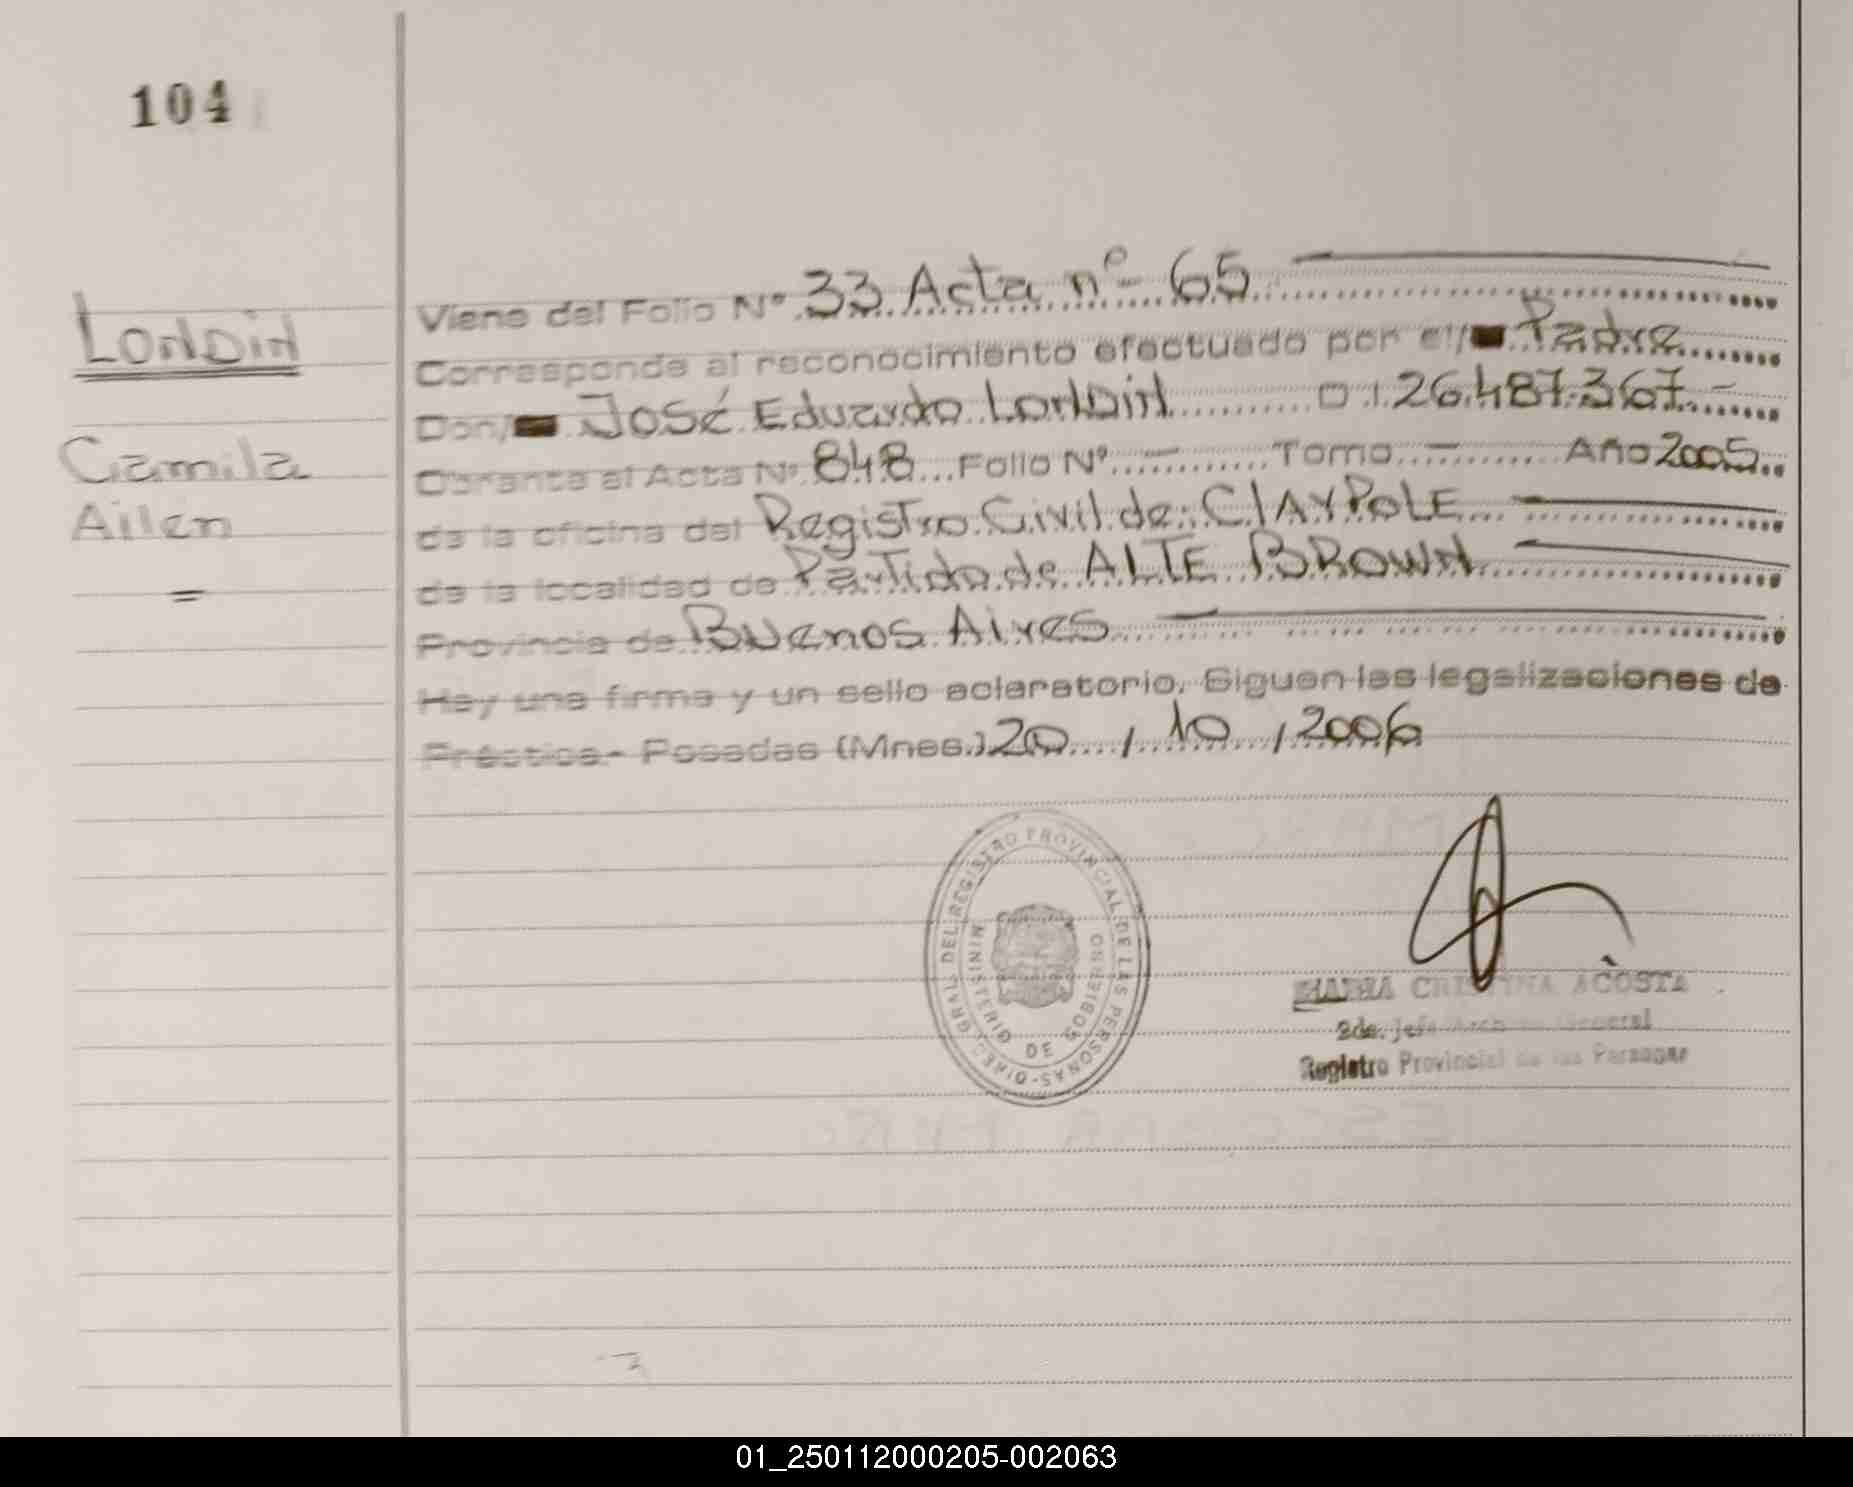 104
Viene del Folio Nº 33 Acta nº 65
Londin
Corresponde al reconocimiento efectuado por el/ Padre
Don/ José Eduardo Londin D.I. 26.487.367.-
Camila
Obrante al Acta Nº 848 Folio Nº - Tomo - Año 2005
Ailén
de la oficina del Registro Civil de: CLAYPOLE
de la localidad de Partido de ALTE BROWN
=
Provincia de Buenos Aires
Hay una firma y un sello aclaratorio. Siguen las legalizaciones de
Práctica.- Posadas (Mnes.) 20 / 10 / 2006
DIRECC. GRAL. DEL REGISTRO PROVINCIAL DE LAS PERSONAS-
MINISTERIO DE GOBIERNO
MARIA CRISTINA ACOSTA
2da. Jefe Archivo General
Registro Provincial de las Personas
01_250112000205-002063